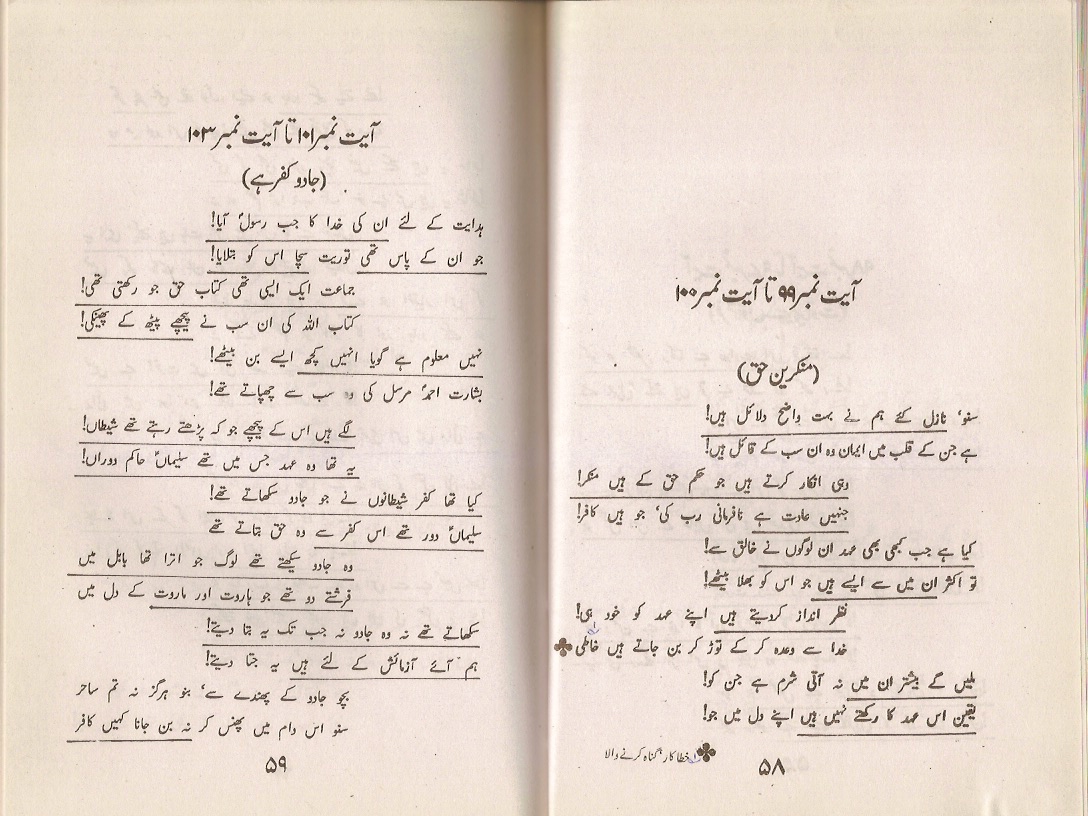 آیت نمبر ۹۹ تا آیت نمبر ۱۰۰
(منکرین حق)
سنو، نازل کئے ہم نے بہت واضح دلائل ہیں!
ہے جن کے قلب میں ایمان وہ ان سب کے قائل ہیں!
وہی انکار کرتے ہیں جو حکم حق کے ہیں منکر!
جنہیں عادت ہے نافرمانی رب کی، جو ہیں کافر!
کیا ہے جب کبھی بھی عہد ان لوگوں نے خالق سے!
تو اکثر ان میں سے ایسے ہیں جو اس کو بھلا بیٹھے!
نظر انداز کر دیتے ہیں اپنے عہد کو خود ہی!
خدا سے وعدہ کر کے توڑ کر بن جاتے ہیں خاطی
ملیں گے بیشتر ان میں نہ آتی شرم ہے جن کو!
یقین اس عہد کا رکھتے نہیں ہیں اپنے دل میں جو!
خطاکار، گناہ کرنے والا
۵۸
آیت نمبر ۱۰۱ تا آیت نمبر ۱۰۳
(جادو کفر ہے)
ہدایت کے لئے ان کی خدا کا جب رسولؐ آیا!
جو ان کے پاس تھی توریت سچا اس کو بتلایا!
جماعت ایک ایسی تھی کتاب حق جو رکھتی تھی!
کتاب اللہ کی ان سب نے پیچھے پیٹھ کے پھینکی!
نہیں معلوم ہے گویا انہیں کچھ ایسے بن بیٹھے!
بشارت احمدؐ مرسل کی وہ سب سے چھپاتے تھے!
لگے ہیں اس کے پیچھے جو کہ پڑھتے رہتے تھے شیطاں!
یہ تھا وہ عہد جس میں تھے سلیماںؑ حاکم دوراں!
کیا تھا کفر شیطانوں نے جو جادو سکھاتے تھے!
سلیماںؑ دور تھے اس کفر سے وہ حق بتاتے تھے
وہ جادو سیکھتے تھے لوگ جو اترا تھا بابل میں
فرشتے دو تھے جو ہاروت اور ماروت کے دل میں
سکھاتے تھے نہ وہ جادو نہ جب تک یہ بتا دیتے!
ہم آئے آزمائش کے لئے ہیں یہ جتا دیتے!
بچو جادو کے پھندے سے، بنو ہرگز نہ تم ساحر
سنو اس دام میں پھنس کر نہ بن جانا کہیں کافر
۵۹